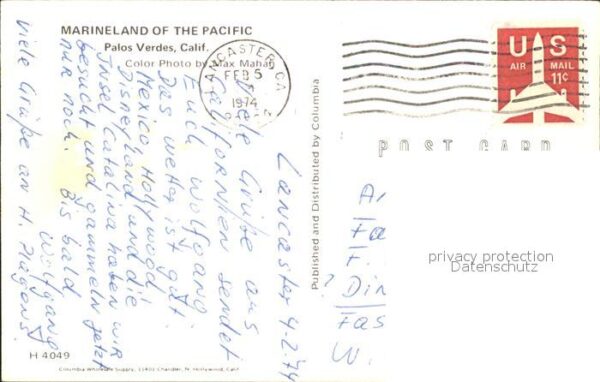 MARINELAND OF THE PACIFIC
Palos Verdes, Calif.
Color Photo by Max Mahan
LANCASTER, CA
FEB 5
1974
U S
AIR MAIL
11¢
POST CARD
Lancaster 4.2.74
Viele Grüße aus
Kalifornien sendet
Euch Wolfgang
Das Wetter ist gut.
Mexico Hollywood
Disneyland und die
Insel Catalina haben wir
besucht und gammeln jetzt
nur noch. Bis bald
Wolfgang
Viele Grüße an H. Hagens!
Published and Distributed by Columbia
Fa
F.
? Din
Fas
W.
privacy protection
Datenschutz
H 4049
Columbia Wholesale Supply, 11401 Chandler, N. Hollywood, Calif.